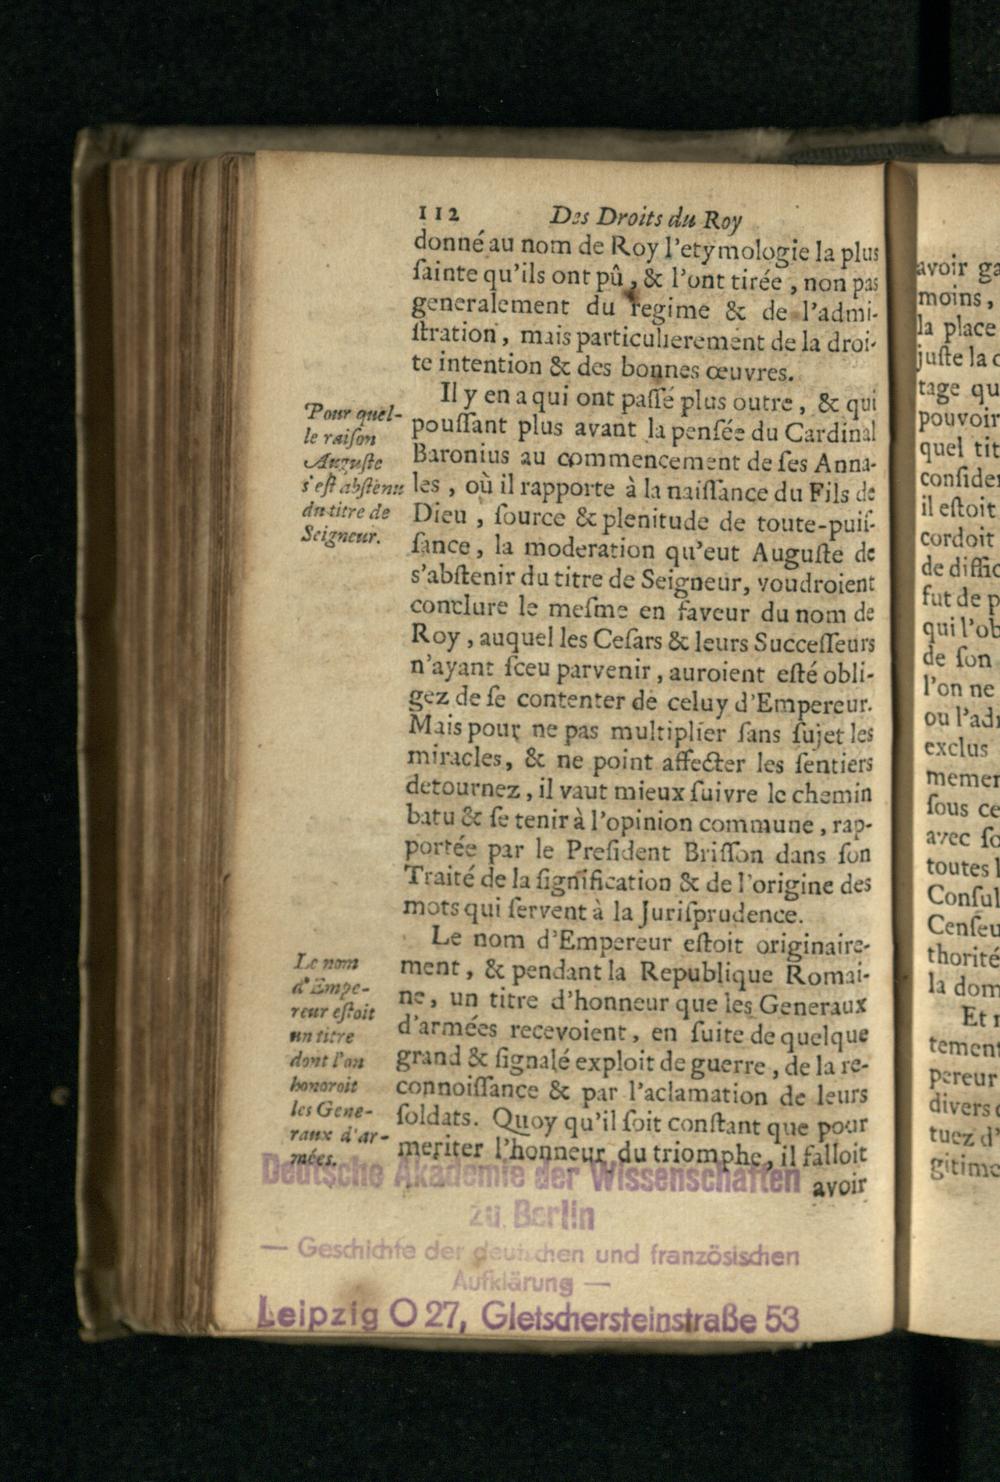 112 Des Droits du Roy
donné au nom de Roy l'etymologie la plus
ſainte qu'ils ont pû, & l'ont tirée, non pas
generalement du regime & de l'admi-
ſtration, mais particulierement de la droi-
te intention & des bonnes œuvres.
Il y en a qui ont paſſé plus outre, & qui
pouſſant plus avant la penſée du Cardinal
Baronius au commencement de ſes Anna-
les, où il rapporte à la naiſſance du Fils de
Dieu, ſource & plenitude de toute-puiſ-
ſance, la moderation qu'eut Auguſte de
s'abſtenir du titre de Seigneur, voudroient
conclure le meſme en faveur du nom de
Roy, auquel les Ceſars & leurs Succeſſeurs
n'ayant ſceu parvenir, auroient eſté obli-
gez de ſe contenter de celuy d'Empereur.
Mais pour ne pas multiplier ſans ſujet les
miracles, & ne point affecter les ſentiers
detournez, il vaut mieux ſuivre le chemin
batu & ſe tenir à l'opinion commune, rap-
portée par le Preſident Briſſon dans ſon
Traité de la ſignification & de l'origine des
mots qui ſervent à la Juriſprudence.
Le nom d'Empereur eſtoit originaire-
ment, & pendant la Republique Romai-
ne, un titre d'honneur que les Generaux
d'armées recevoient, en ſuite de quelque
grand & ſignalé exploit de guerre, de la re-
connoiſſance & par l'aclamation de leurs
ſoldats. Quoy qu'il ſoit conſtant que pour
meriter l'honneur du triomphe, il falloit
avoir
Pour quel-
le raiſon
Auguſte
s'eſt abſtenu
du titre de
Seigneur.
Le nom
d'Empe-
reur eſtoit
un titre
dont l'on
honoroit
les Gene-
raux d'ar-
mées.
Deutsche Akademie der Wissenschaften
zu Berlin
— Geschichte der deutschen und französischen
Aufklärung —
Leipzig O 27, Gletschersteinstraße 53
avoir ga
moins,
la place
juſte la
tage qu
pouvoir
quel tit
conſider
il eſtoit
cordoit
de diffic
fut de p
qui l'ob
de ſon
l'on ne
ou l'adm
exclus
memen
ſous ce
avec ſo
toutes l
Conſul
Cenſeu
thorité
la dom
Et
tement
pereur
divers
tuez d'
gitime